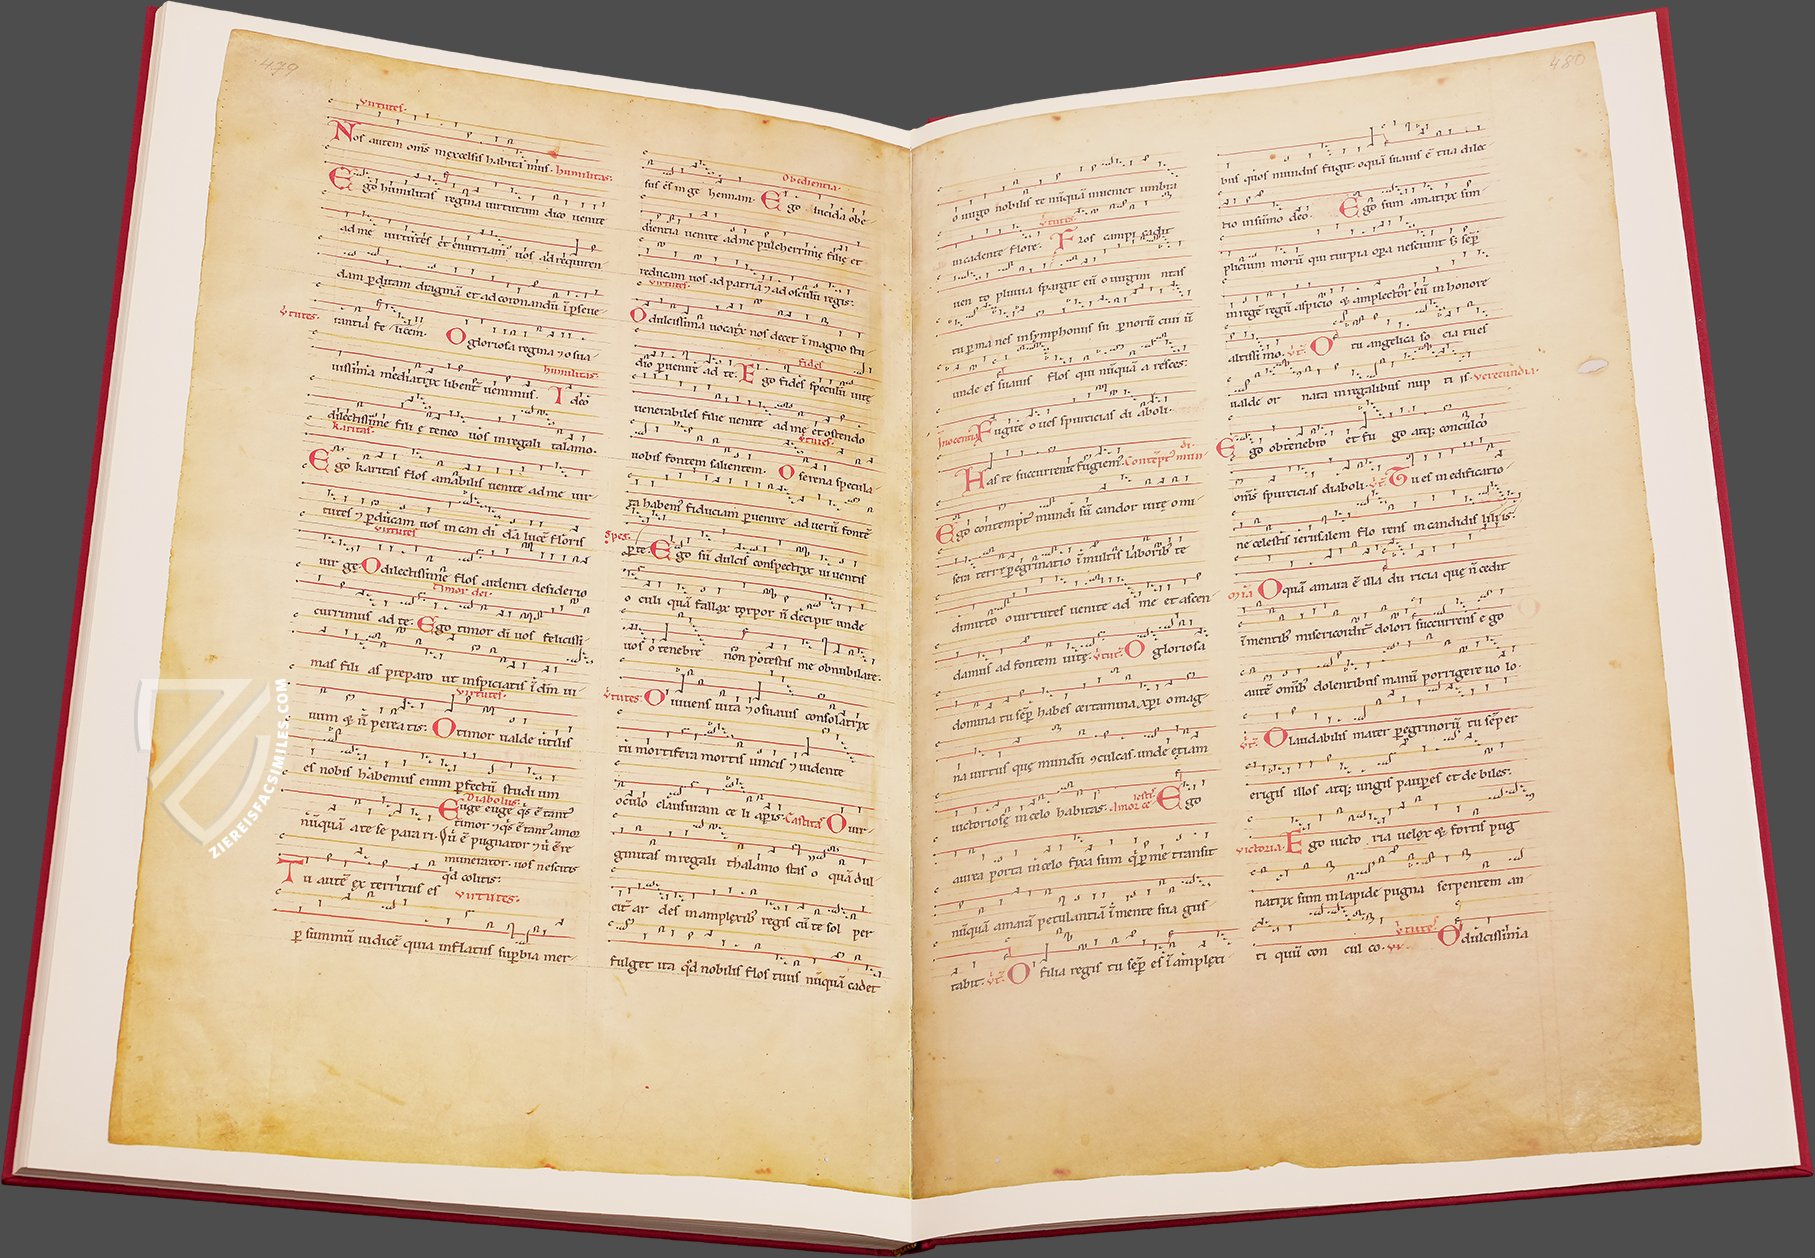 479
virtutes.
Nos autem om̄s in excelsis habitabimus. humilitas:
Ego humilitas regina virtutum dico uenite
ad me uirtutes et enutriam uos ad requiren-
dam perditam dragmā et ad coronandū ī perseue-
v̄tutes. rantia felicem. O gloriosa regina ⁊ o sua-
uissima mediatrix libent̄ uenimus. humilitas. Ideo
dilectissime filie teneo uos in regali talamo.
Karitas.
Ego karitas flos amabilis uenite ad me uir-
tutes ⁊ perducam uos in candidā lucē floris
virtutes
uirge. O dilectissime flos ardenti desiderio
timor dei.
currimus ad te. Ego timor dī uos felicissi-
mas filias preparo ut inspiciatis ī dm̄ ui-
virtutes.
uum & n̄ pereatis. O timor ualde utilis
es nobis habemus enim perfectū studium
Diabolus.
Euge euge q̄s ē tant'
nūquā a te separari. timor ⁊ q̄s ē tant' amor
Ub̄ ē pugnator ⁊ ub̄ ē re
munerator. uos nescitis
qd̄ colitis:
Tu autē exterritus es virtutes.
per summū iudicē quia inflatus superbia mer-
Obedientia.
sus es in gehennam. Ego lucida obe-
dientia uenite ad me pulcherrimę filię et
reducam uos ad patriā ⁊ ad osculū regis:
virtutes.
O dulcissima uocatrix nos decet ī magno stu-
fides
dio peruenire ad te. Ego fides speculū uitę
uenerabiles filie uenite ad me et ostendo
v̄tutes.
uobis fontem salientem. O serena specula-
ta habem' fiduciam peruenire ad uerū fontē
Spes.
per te. Ego sū dulcis conspectrix uiuentis
oculi quā fallax torpor n̄ decipit unde
uos o tenebre non potestis me obnubilare.
v̄tutes: O uiuens uita ⁊ o suauis consolatrix
tu mortifera mortis uincis ⁊ uidente
oculo clausuram celi aperis. Castitas O uir-
ginitas in regali thalamo stas o quā dul
cit̄ ardes in amplexib' regis cū te sol per
fulget ita qd̄ nobilis flos tuus nūquā cadet
480
o uirgo nobilis te nūquā inueniet umbra
v̄tutes
in cadente flore. Flos campi cadit
uento pluuia spargit eū o uirginitas
tu permanes in symphoniis supernorū ciuiū
unde es suauis flos qui nūquā aresces:
Innocentia Fugite oues spurcicias diaboli.
Has te succurrente fugiem'. Contēpt' mundi.
Ego contempt' mundi sū candor uitę o mi
sera terrę peregrinatio ī multis laborib' te
dimitto o uirtutes uenite ad me et ascen-
damus ad fontem uitę. v̄tut̄ O gloriosa
domina tu semp̄ habes certamina xp̄i o mag
na uirtus quę mundū ⁊culcas unde etiam
uictoriosę in celo habitas. Amor celestis Ego
aurea porta in celo fixa sum q̄ per me transit
nūquā amarā petulantiā ī mente sua gus-
tabit. v̄t̄ O filia regis tu semp̄ es ī amplexi-
bus quos mundus fugit. o quā suauis ē tua dilec
tio in sūmo deo. Ego sum amatrix sim-
plicium morū qui turpia opera nesciunt s; semp̄
in regē regū aspicio & amplector eū in honore
altissimo. v̄t̄ O tu angelica socia tu es
ualde ornata in regalibus nuptiis. verecundia.
Ego obtenebro et fugo atq; conculco
om̄s spurcicias diaboli. v̄t̄ Tu es in edificatio-
ne celestis ierusalem florens in candidis liliis:
O quā amara ē illa duricia quę n̄ cedit
ī mentib' misericordit̄ dolori succurrens ego
autē omib' dolentibus manū porrigere uolo.
v̄t̄ O laudabilis mater peregrinorū tu semper
erigis illos atq; ungis pauperes et debiles:
victoria. Ego uictoria uelox & fortis pug
natrix sum in lapide pugna serpentem an-
v̄tutes
tiquū conculco. O dulcissima
ZIEREISFACSIMILES.COM